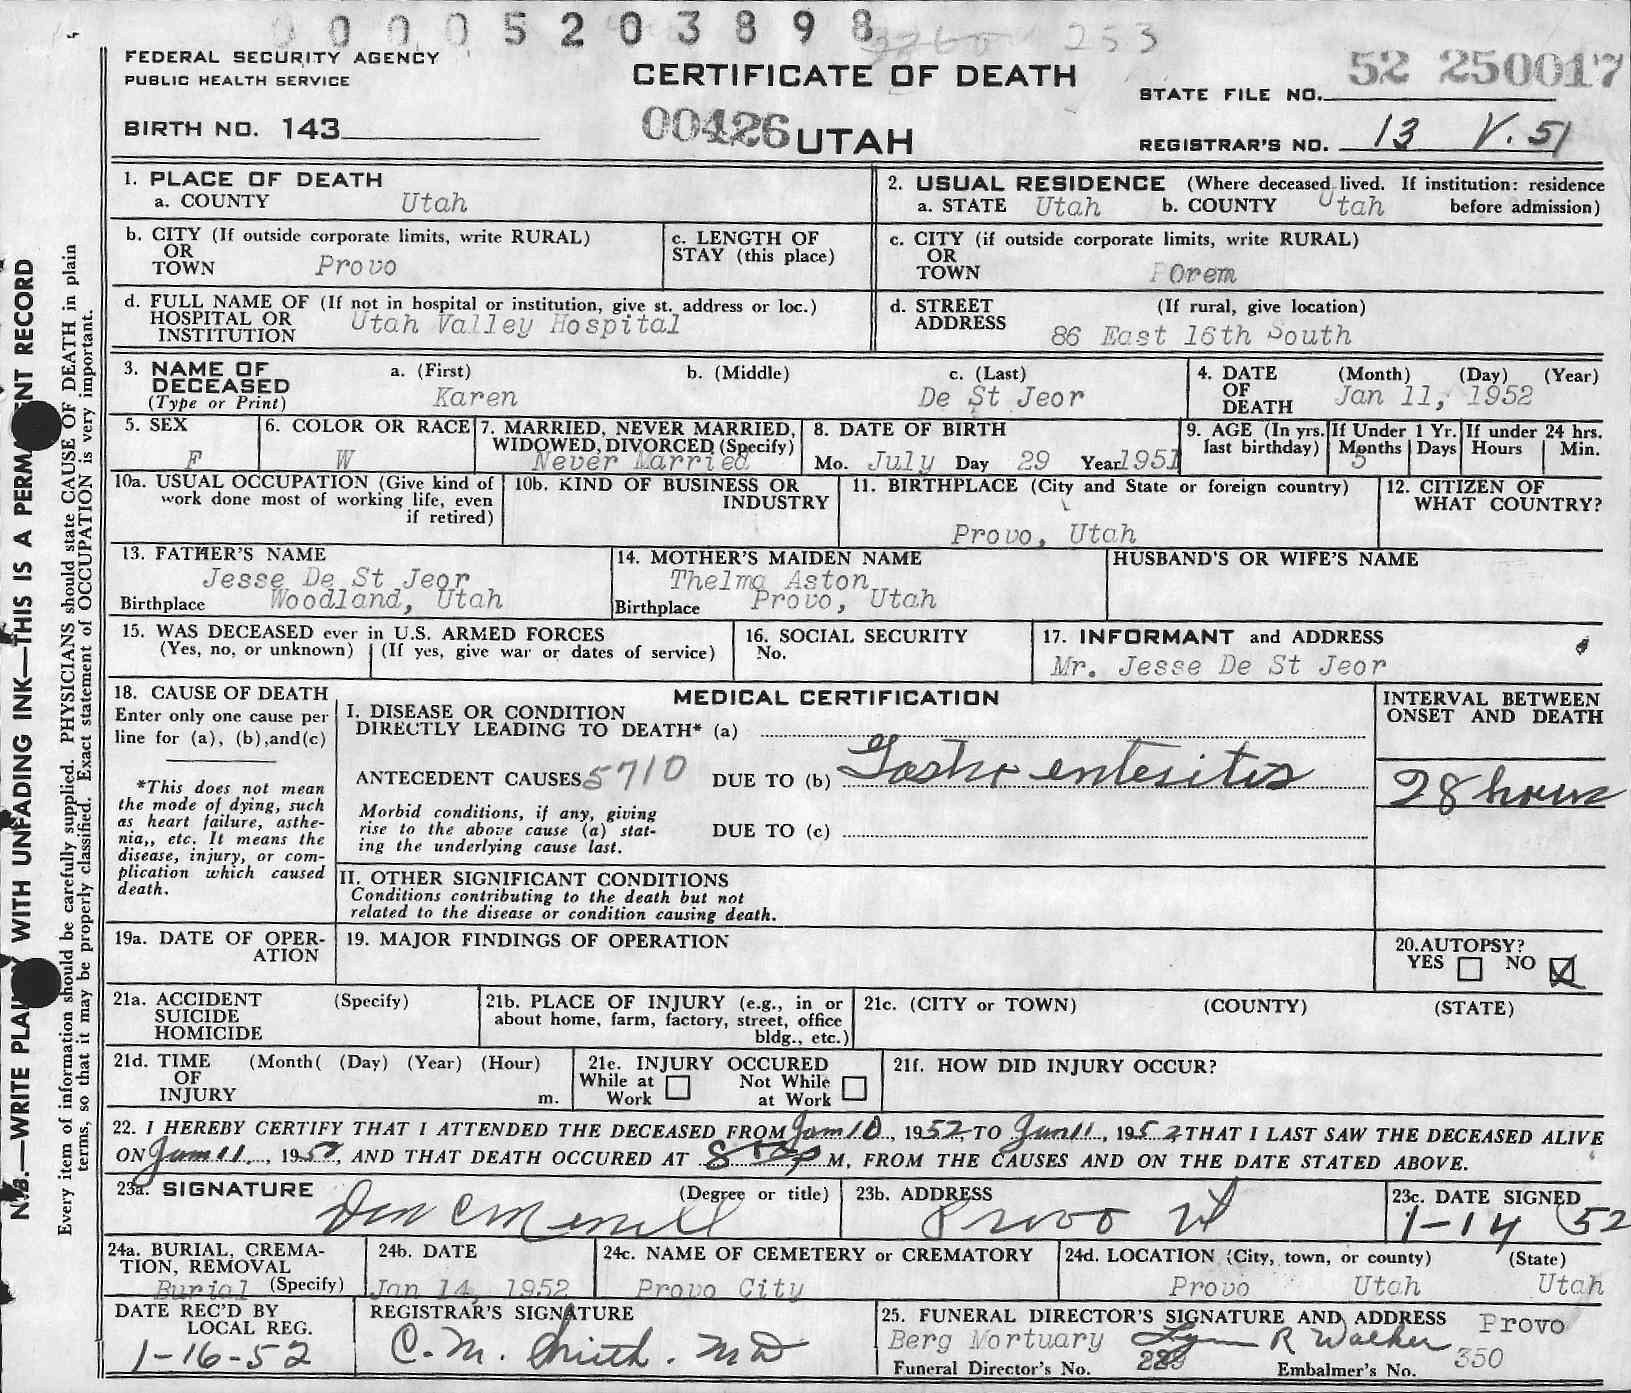 0 0 0 0 5 2 0 3 8 9 8 253
FEDERAL SECURITY AGENCY
PUBLIC HEALTH SERVICE
CERTIFICATE OF DEATH
STATE FILE NO. 52 250017
BIRTH NO. 143
00426 UTAH
REGISTRAR'S NO. 13 V. 51
1. PLACE OF DEATH
a. COUNTY Utah
2. USUAL RESIDENCE (Where deceased lived. If institution: residence
a. STATE Utah b. COUNTY Utah before admission)
b. CITY (If outside corporate limits, write RURAL)
OR
TOWN Provo
c. LENGTH OF
STAY (this place)
c. CITY (if outside corporate limits, write RURAL)
OR
TOWN Orem
d. FULL NAME OF (If not in hospital or institution, give st. address or loc.)
HOSPITAL OR Utah Valley Hospital
INSTITUTION
d. STREET (If rural, give location)
ADDRESS 86 East 16th South
3. NAME OF a. (First) b. (Middle) c. (Last)
DECEASED Karen De St Jeor
(Type or Print)
4. DATE (Month) (Day) (Year)
OF Jan 11, 1952
DEATH
5. SEX
F
6. COLOR OR RACE
W
7. MARRIED, NEVER MARRIED,
WIDOWED, DIVORCED (Specify)
Never Married
8. DATE OF BIRTH
Mo. July Day 29 Year 1951
9. AGE (In yrs.
last birthday)
If Under 1 Yr.
Months Days
5
If under 24 hrs.
Hours Min.
10a. USUAL OCCUPATION (Give kind of
work done most of working life, even
if retired)
10b. KIND OF BUSINESS OR
INDUSTRY
11. BIRTHPLACE (City and State or foreign country)
Provo, Utah
12. CITIZEN OF
WHAT COUNTRY?
13. FATHER'S NAME
Jesse De St Jeor
Birthplace Woodland, Utah
14. MOTHER'S MAIDEN NAME
Thelma Aston
Birthplace Provo, Utah
HUSBAND'S OR WIFE'S NAME
15. WAS DECEASED ever in U.S. ARMED FORCES
(Yes, no, or unknown) (If yes, give war or dates of service)
16. SOCIAL SECURITY
No.
17. INFORMANT and ADDRESS
Mr. Jesse De St Jeor
18. CAUSE OF DEATH
Enter only one cause per
line for (a), (b),and(c)
*This does not mean
the mode of dying, such
as heart failure, asthe-
nia,, etc. It means the
disease, injury, or com-
plication which caused
death.
MEDICAL CERTIFICATION
I. DISEASE OR CONDITION
DIRECTLY LEADING TO DEATH* (a)
ANTECEDENT CAUSES 5710 DUE TO (b) Gastro enteritis
Morbid conditions, if any, giving
rise to the above cause (a) stat-
ing the underlying cause last.
DUE TO (c)
II. OTHER SIGNIFICANT CONDITIONS
Conditions contributing to the death but not
related to the disease or condition causing death.
INTERVAL BETWEEN
ONSET AND DEATH
28 hours
19a. DATE OF OPER-
ATION
19. MAJOR FINDINGS OF OPERATION
20.AUTOPSY?
YES NO
21a. ACCIDENT (Specify)
SUICIDE
HOMICIDE
21b. PLACE OF INJURY (e.g., in or
about home, farm, factory, street, office
bldg., etc.)
21c. (CITY or TOWN) (COUNTY) (STATE)
21d. TIME (Month( (Day) (Year) (Hour)
OF
INJURY m.
21e. INJURY OCCURED
While at Not While
Work at Work
21f. HOW DID INJURY OCCUR?
22. I HEREBY CERTIFY THAT I ATTENDED THE DECEASED FROM Jan 10, 1952, TO Jan 11, 1952 THAT I LAST SAW THE DECEASED ALIVE
ON Jan 11, 1952, AND THAT DEATH OCCURED AT 8 P M, FROM THE CAUSES AND ON THE DATE STATED ABOVE.
23a. SIGNATURE (Degree or title)
Don C Merrill
23b. ADDRESS
Provo Ut
23c. DATE SIGNED
1-14 52
24a. BURIAL, CREMA-
TION, REMOVAL
Burial (Specify)
24b. DATE
Jan 14, 1952
24c. NAME OF CEMETERY or CREMATORY
Provo City
24d. LOCATION (City, town, or county) (State)
Provo Utah Utah
DATE REC'D BY
LOCAL REG.
1-16-52
REGISTRAR'S SIGNATURE
C. M. Smith. MD
25. FUNERAL DIRECTOR'S SIGNATURE AND ADDRESS Provo
Berg Mortuary Lynn R Walker
Funeral Director's No. Embalmer's No. 350
N.B.—WRITE PLAINLY WITH UNFADING INK—THIS IS A PERMANENT RECORD
Every item of information should be carefully supplied. PHYSICIANS should state CAUSE OF DEATH in plain
terms, so that it may be properly classified. Exact statement of OCCUPATION is very important.